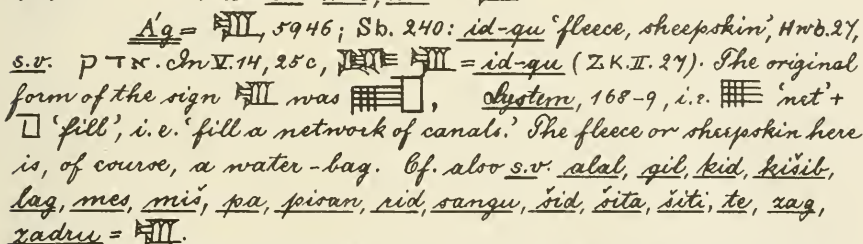 Ág = 𒋃, 5946; Sb. 240: id-qu ‘fleece, sheepskin’, Hwb. 27,
s.v. אדק. In V. 14, 25c, 𒋃 = id-qu (ZK. II. 27). The original
form of the sign 𒋃 was , System, 168-9, i.e. ‘net’ +
‘fill’, i.e. ‘fill a network of canals.’ The fleece or sheepskin here
is, of course, a water-bag. Cf. also s.v. alal, gil, kid, kišib,
lag, mes, miš, pa, pisan, rid, sangu, šid, šita, šiti, te, zag,
zadru = 𒋃.